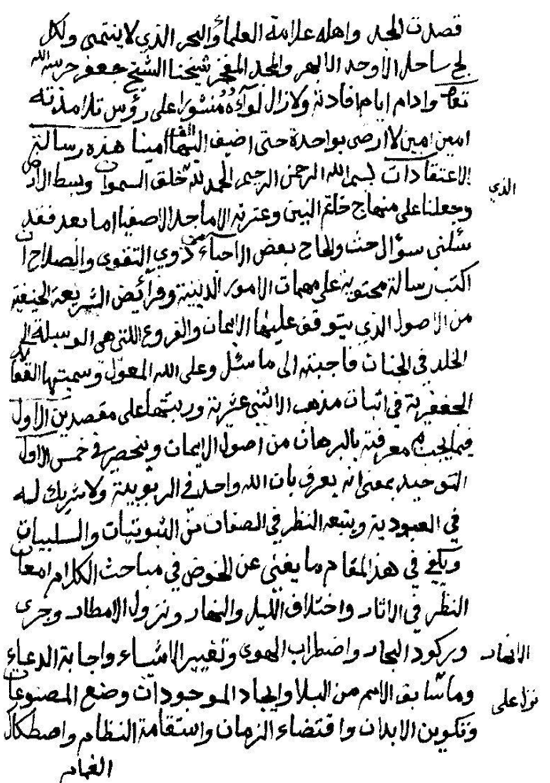 قصدت المجد واهله علامة العلماء والبحر الذي لا ينتهي ولكل
لج ساحل الاوحد الالهر والمجد المفخر شيخنا الشيخ جعفر حرسه الله
تعالى وادام ايام افادته ولازال لواءه منشورا على رؤس تلامذته
امين امين لا ارضى بواحدة حتى اضيف اليها الف امينا هذه رسالة
الاعتقادات بسم الله الرحمن الرحيم الحمد لله خلق السموات وبسط الارض
الذي
وجعلنا على منهاج خاتم النبيين وعترته الاماجد الاصفيا اما بعد فقد
سئلني سؤال حث والحاح بعض الاحباء من ذوي التقوى والصلاح ان
اكتب رسالة محتوية على مهمات الامور الدينية وفرائض الشريعة الحنيفية
من الاصول الذي يتوقف عليها الايمان والفروع اللتي هي الوسيلة الى
الخلد في الجنان فاجبته الى ما سئل وعلى الله المعول وسميتها العقائد
الجعفرية في اثبات مذهب الاثنى عشرية ورتبتها على مقصدين الاول
فيما يجب معرفته بالبرهان من اصول الايمان وينحصر في خمس الاول
التوحيد بمعنى انه يعرف بان الله واحد في الربوبية ولا شريك له
في العبودية ويتبعه النظر في الصفات من الثبوتيات والسلبيات
ويكفي في هذا المقام ما يغني عن الخوض في مباحث الكلام امعان
النظر في الاثار واختلاف الليل والنهار ونزول الامطار وجرى
الانهار
وركود البحار واضطراب الهوى وتغيير الاشياء واجابة الدعاء
وما سابق الامم من البلا وايجاد الموجودات وصنع المصنوعات
نزل على
وتكوين الابدان واقتضاء الزمان واستقامة النظام واصطكاك
الغمام